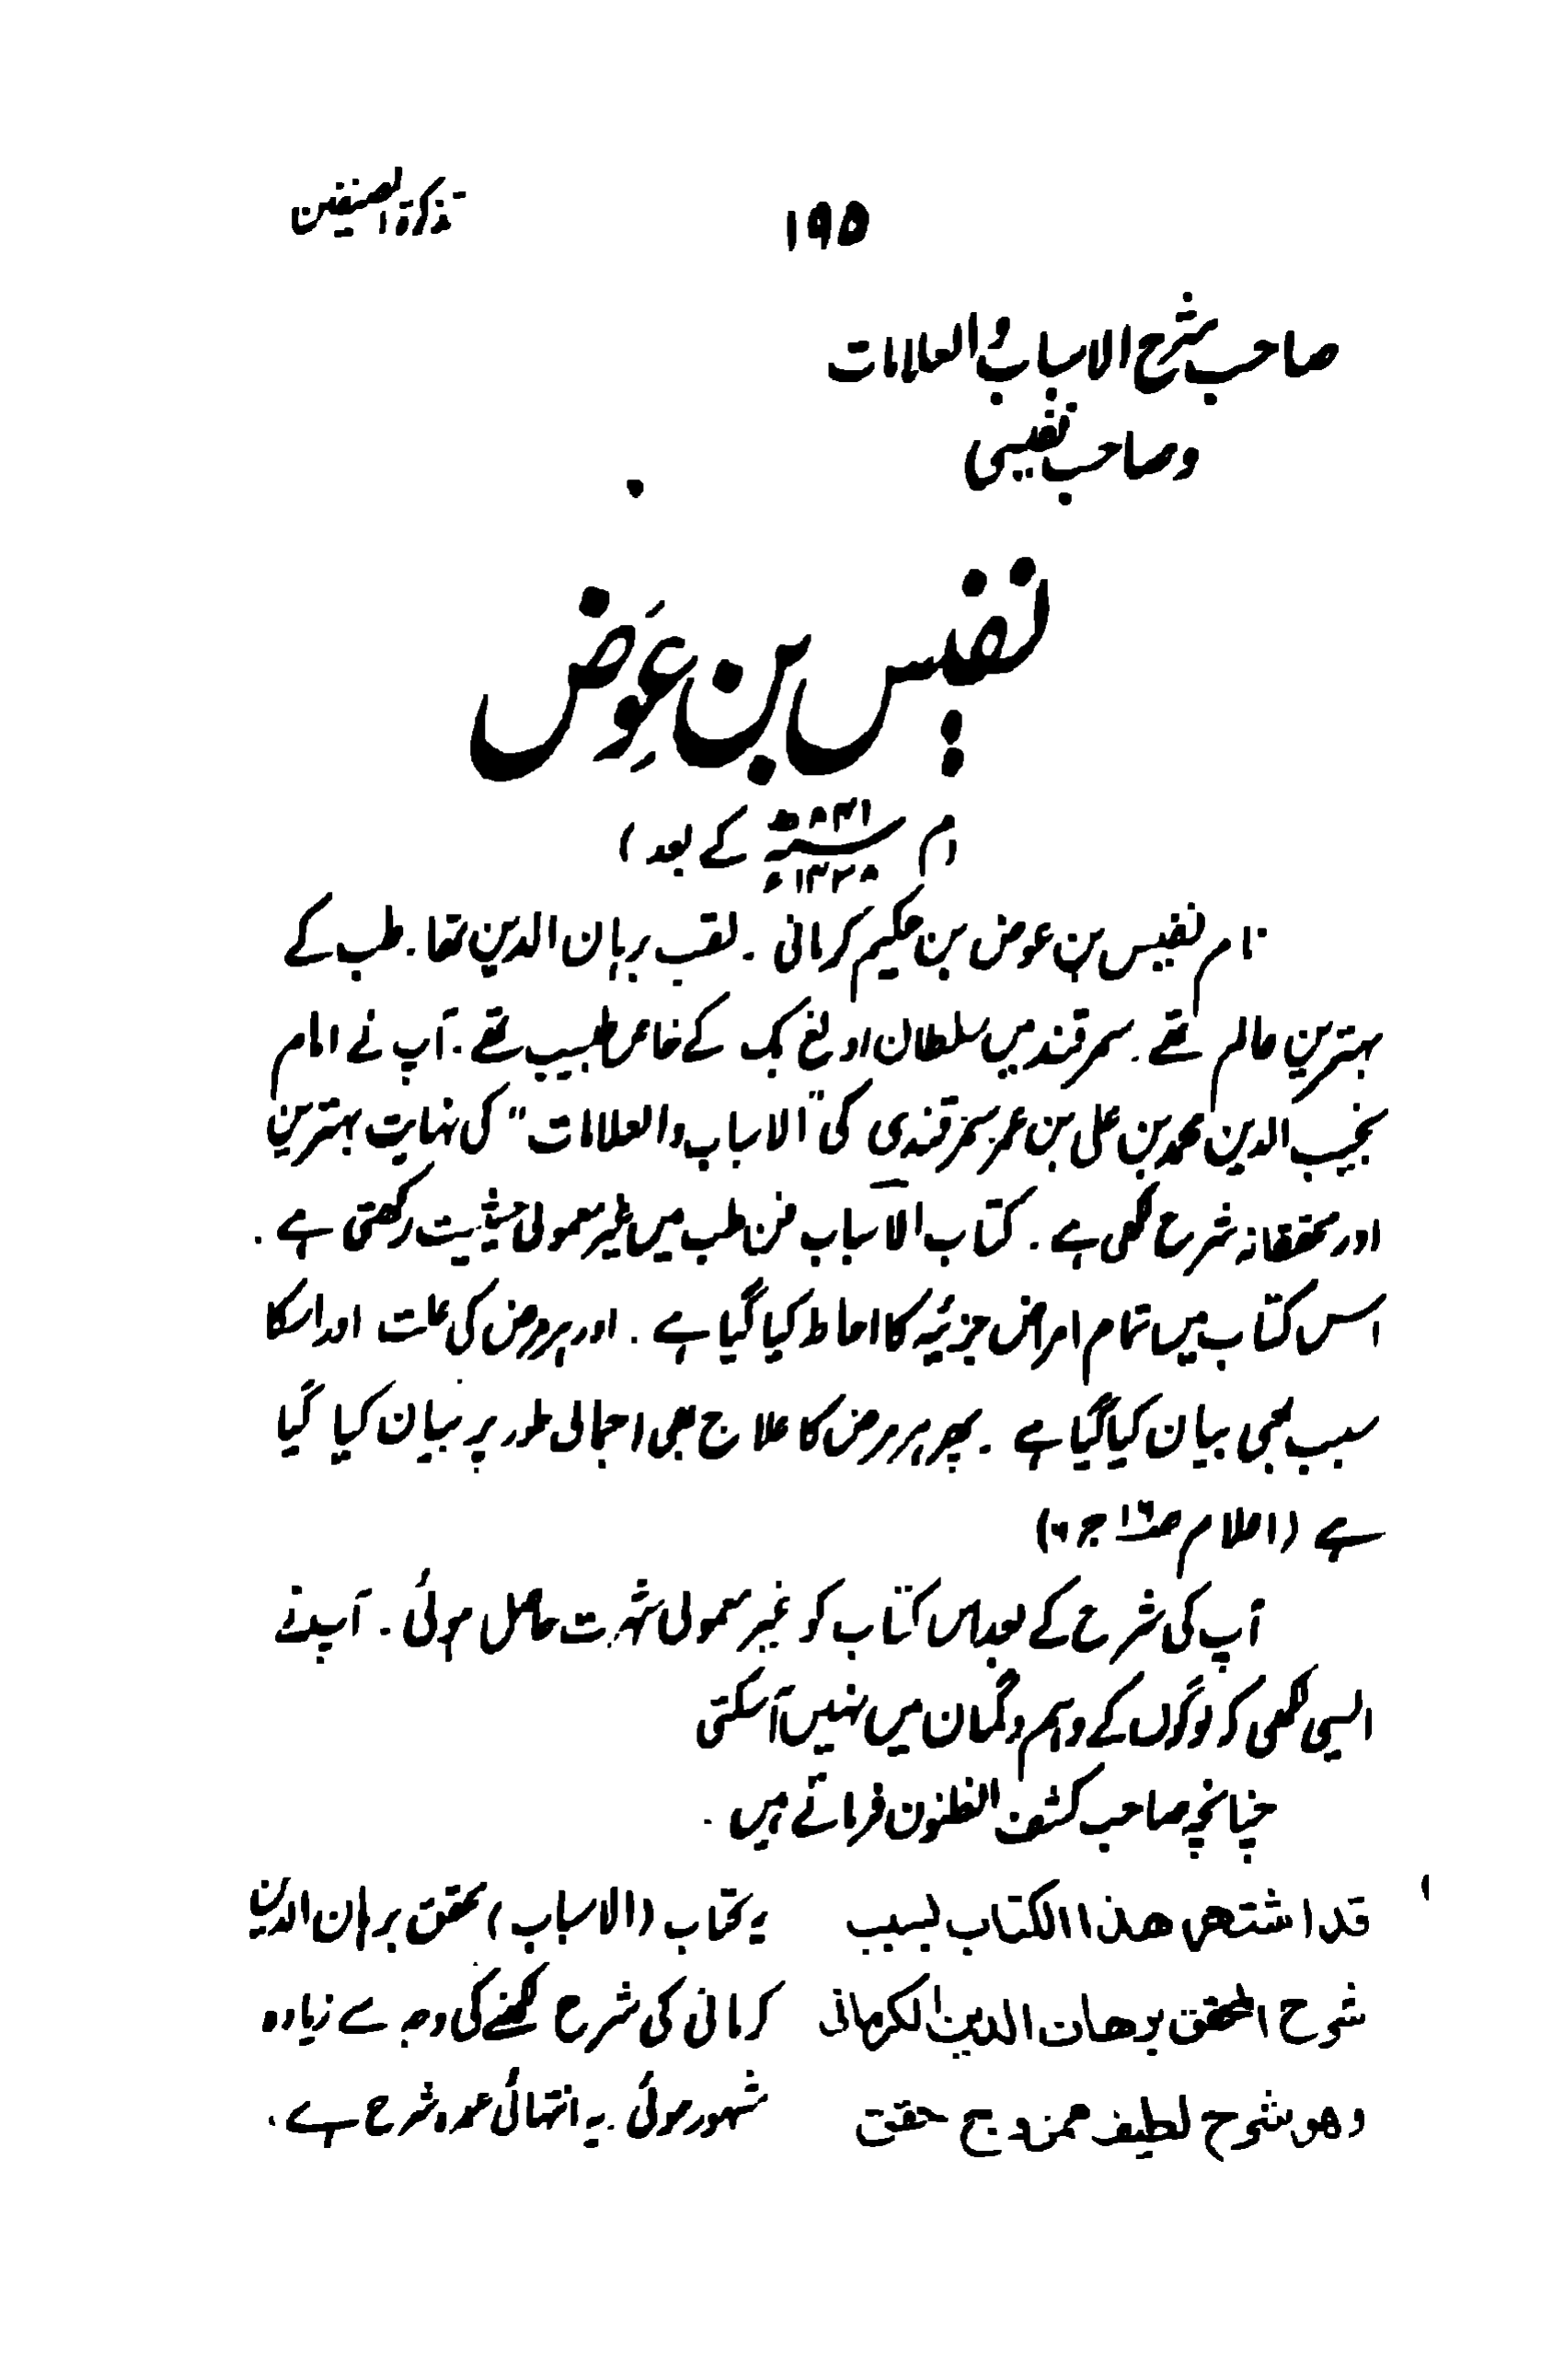 تذکرۃ المصنفین
۱۹۵
صاحب شرح الاسباب و العلامات
و صاحب نفیسی
نفیس بن عوض
(م ۸۴۱ھ کے بعد)
نام نفیس بن عوض بن حکیم کرمانی ۔ لقب برہان الدین تھا ۔ طب کے
بہترین عالم تھے ۔ سمرقند میں سلطان اولغ بک کے خاص طبیب تھے ۔ آپ نے امام
نجیب الدین محمد بن علی بن عمر سمرقندی کی "الاسباب والعلامات" کی نہایت بہترین
اور محققانہ شرح لکھی ہے ۔ کتاب الاسباب فن طب میں غیر معمولی حیثیت رکھتی ہے ۔
اس کتاب میں تمام امراض جزئیہ کا احاطہ کیا گیا ہے ۔ اور ہر مرض کی علت اور اسکا
سبب بھی بیان کیا گیا ہے ۔ پھر ہر مرض کا علاج بھی اجمالی طور پر بیان کیا گیا
ہے (اعلام ص۱۶ ج)
آپ کی شرح کے بعد اس کتاب کو غیر معمولی شہرت حاصل ہوئی ۔ آپ نے
ایسی لکھی کہ لوگوں کے وہم و گمان میں نہیں آسکتی
چنانچہ صاحب کشف الظنون فرماتے ہیں ۔
قد اشتهر هذا الكتاب بسبب
شرح المحقق برهان الدين الكرمانى
وهو شرح لطيف ممزوج حقق
یہ کتاب (الاسباب) محقق برہان الدین
کرمانی کی شرح لکھنے کی وجہ سے زیادہ
مشہور ہوئی ۔ یہ انتہائی عمدہ شرح ہے ۔